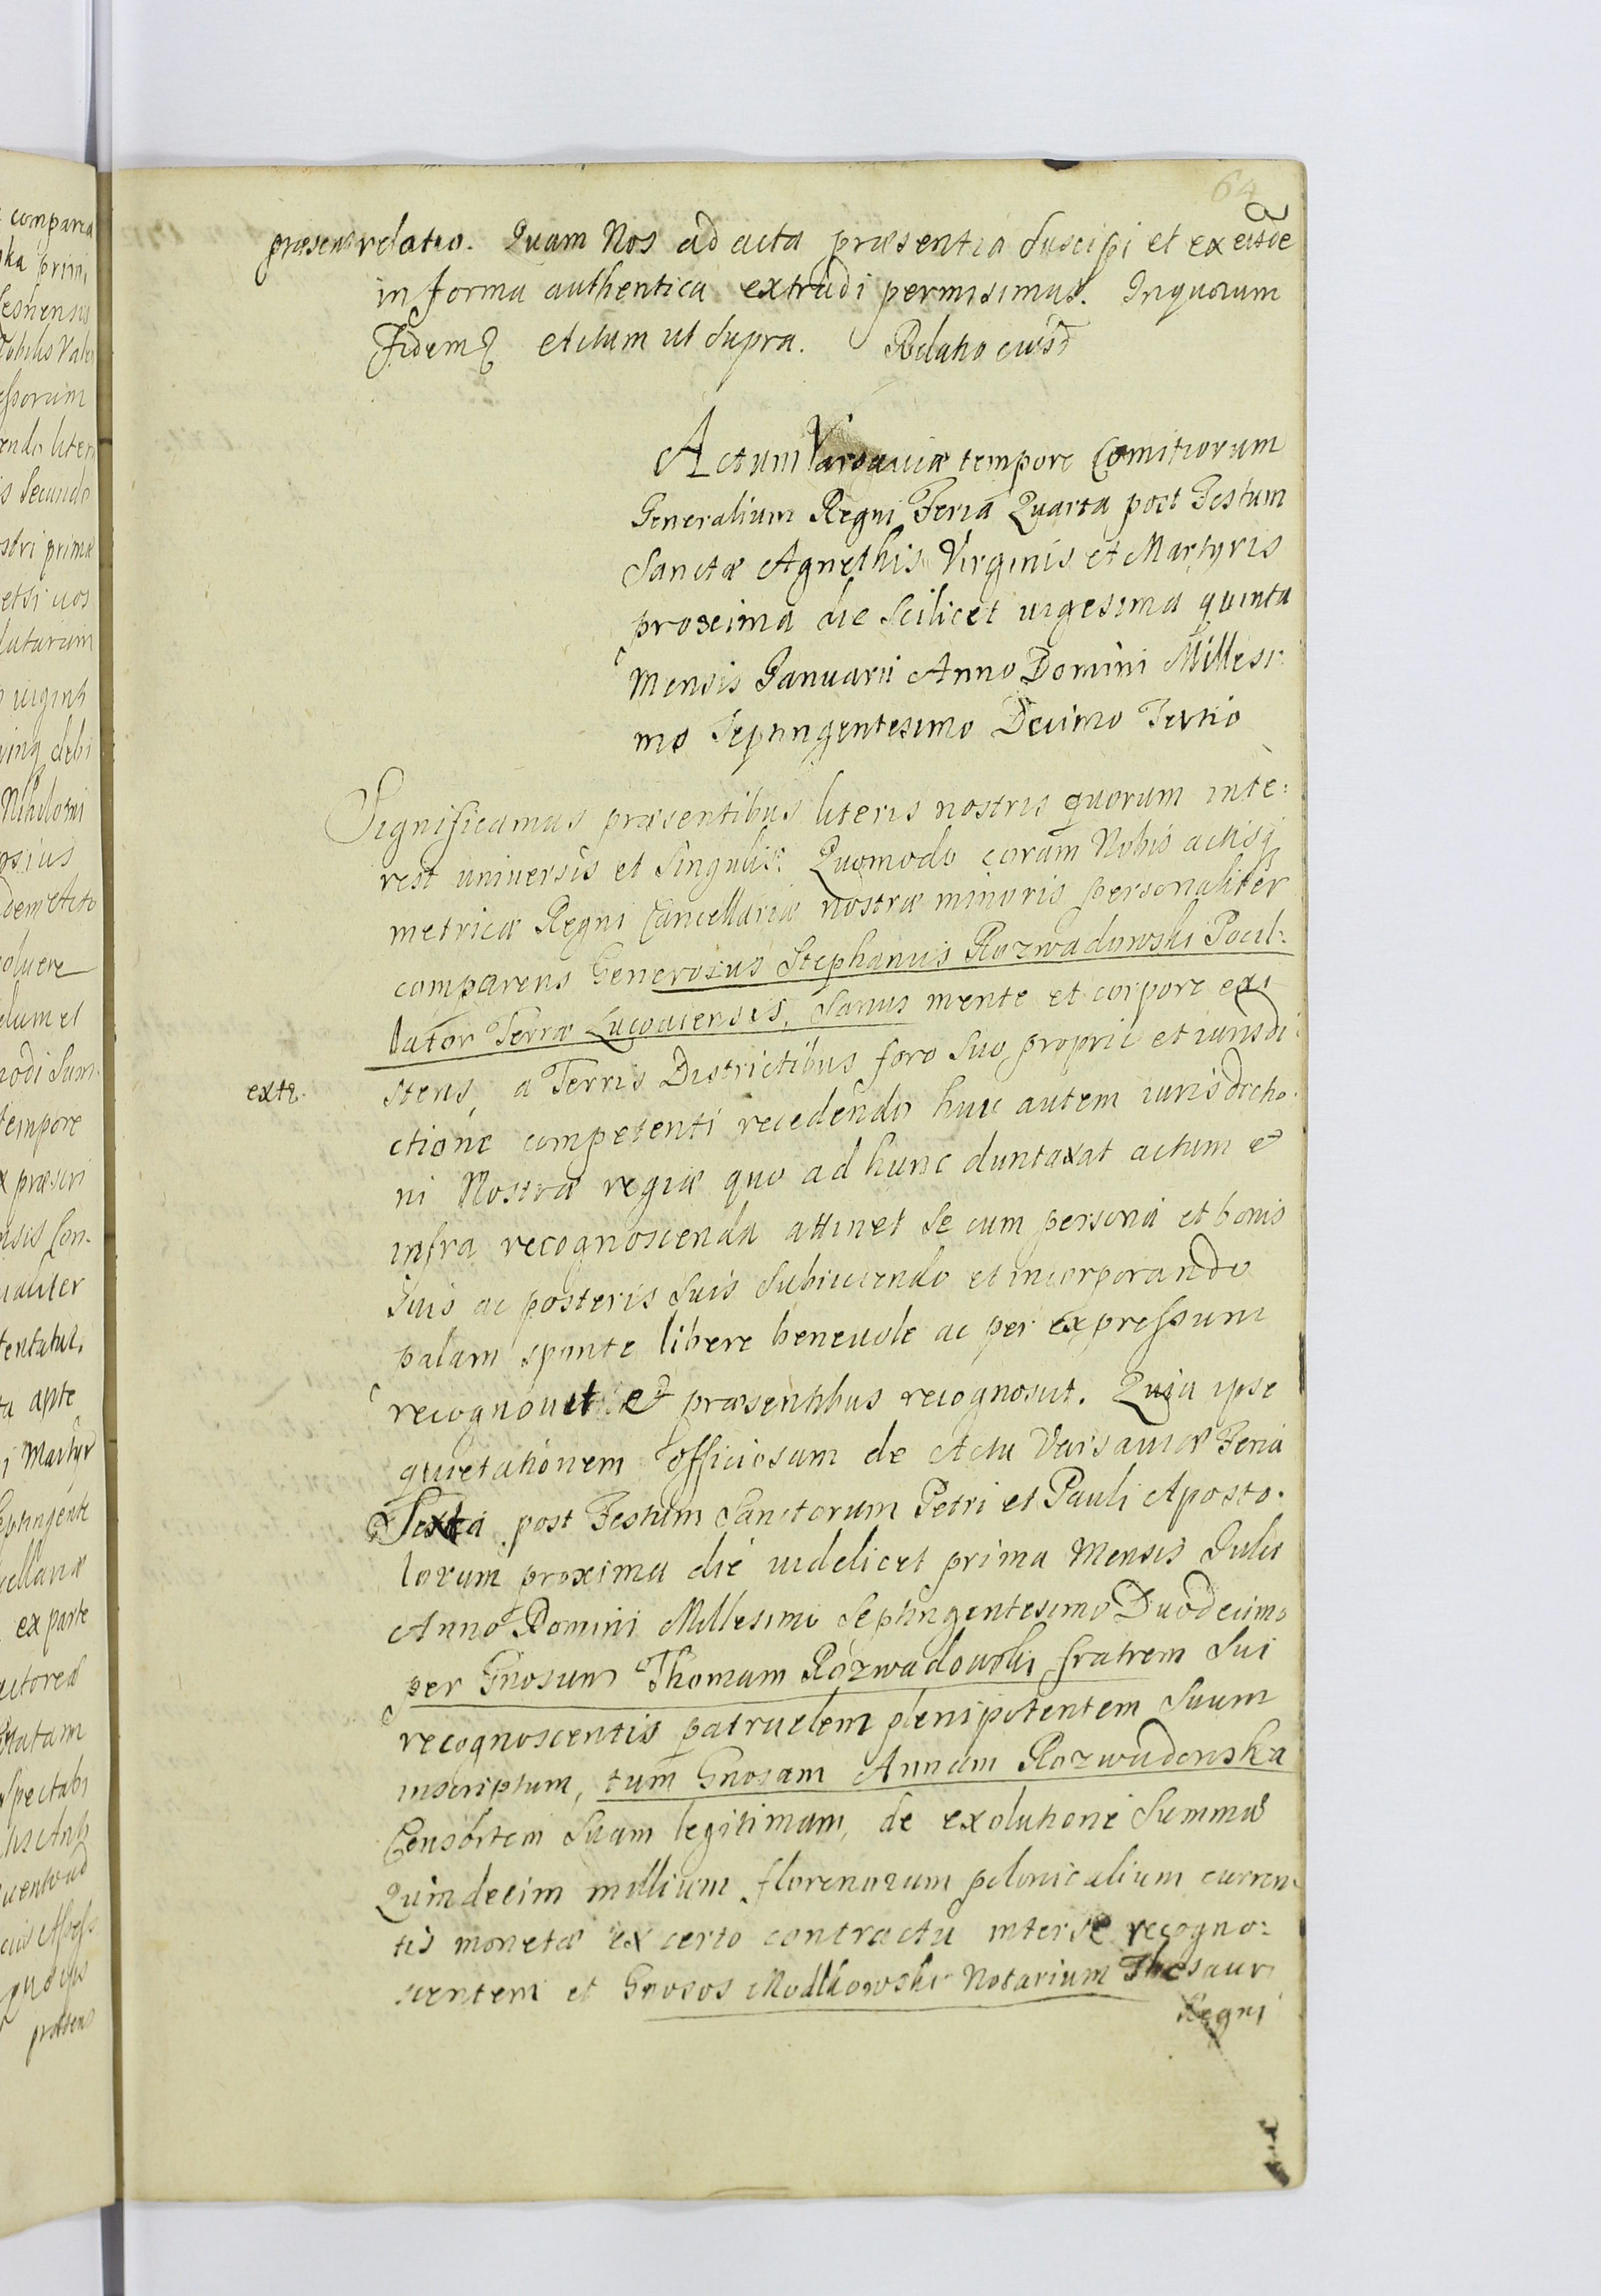 64
præsens relatio. Quam Nos ad acta præsentia suscipi et ex eisde
in forma authentica extradi permisimus. In quorum
Fidem etctum ut supra. Relatio eiusd
Actum Varsaviæ tempore Comitiorum
Generalium Regni Feria Quarta post Festum
Sanctæ Agnethis Virginis et Martyris
proxima die Scilicet uigesima quinta
Mensis Januarii Anno Domini Millesi:
mo Septingentesimo Decimo Tertio
Significamus præsentibus literis nostris quorum inte:
rest uniuersis et Singulis: Quomodo coram Nobis actisq
metricæ Regni Cancellariæ nostræ minoris personaliter
comparens Generosus Stephanus Rozwadowski Pocil:
lator Terræ Lucoviensis, Sanus mente et corpore exi
stens, a Terris Districtibus foro suo proprio et iurisdi
extr.
ctione competenti recedendo huic autem iurisdictio:
ni Nostræ regiæ quo ad hunc duntaxat actum et
infra recognoscenda attinet se cum persona et bonis
suis ac posteris suis subiiciendo et incorporando
palam sponte libere beneuole ac per expressum
recognouit et præsentibus recognoscit. Quia ipse
quietationem officiosam de Actu Varsaviæ Feria
Sexta post Festum Sanctorum Petri et Pauli Aposto:
lorum proxima die uidelicet prima Mensis Julii
Anno Domini Millesimo Septingentesimo Duodecimo
per Gnosum Thomam Rozwadowski fratrem sui
recognoscentis patruelem plenipotentem suum
inscriptum, tum Gnosam Annam Rozwadowska
Consortem suam legitimam, de exolutione Summæ
Quindecim millium florenorum polonicalium curren
tis monetæ ex certo contractu inter se recogno:
scentem et Gnosos Modlkowski Notarium Thesauri
Regni